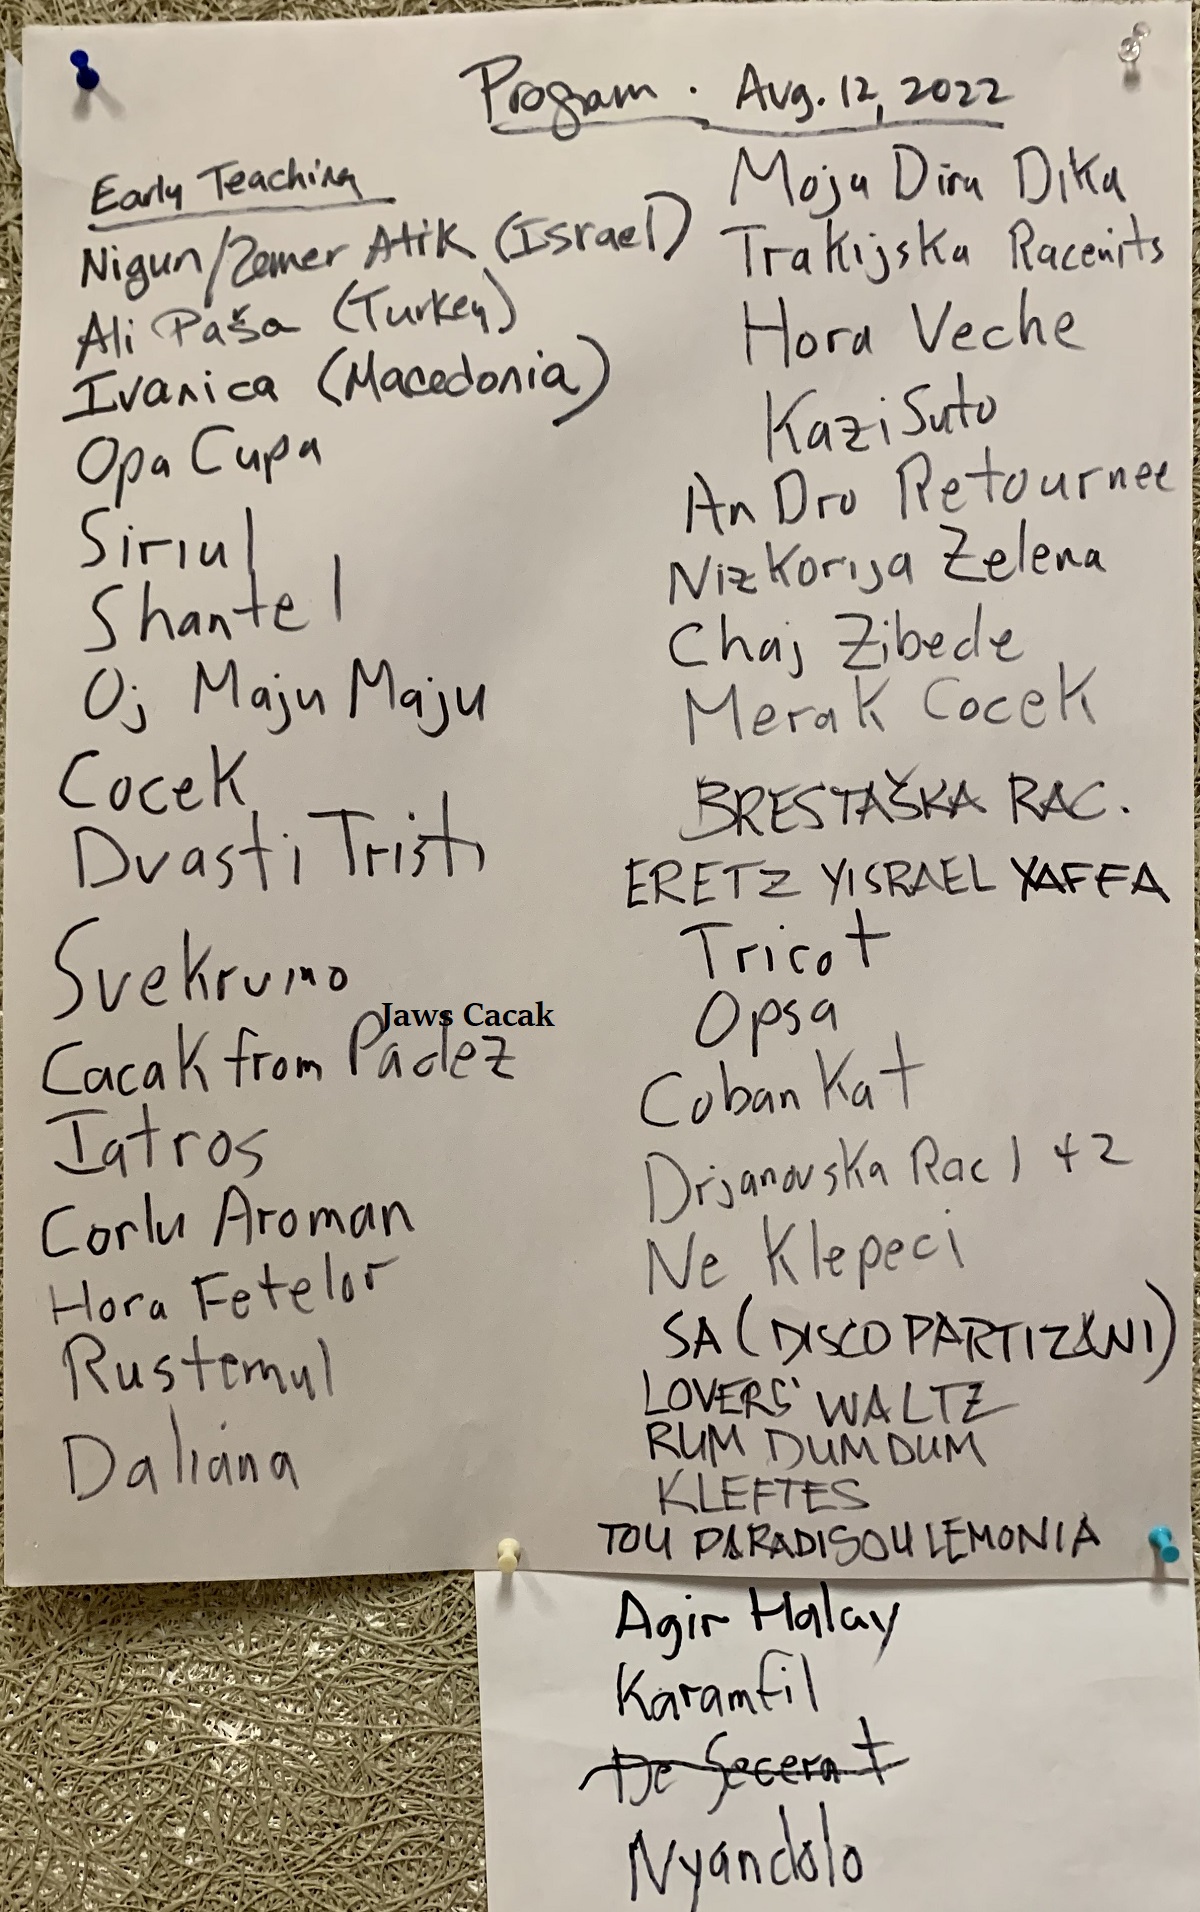 Program. Aug. 12, 2022
Early Teaching
Nigun/Zemer Atik (Israel)
Ali Paša (Turkey)
Ivanica (Macedonia)
Opa Cupa
Siriul
Shantel
Oj Maju Maju
Cocek
Dvasti Tristi
Svekrvino
Jaws Cacak
Cacak from Padez
Iatros
Corlu Aroman
Hora Fetelor
Rustemul
Daliana
Moja Dira Dika
Trakijska Racenits
Hora Veche
Kazi Suto
An Dro Retournee
Niz Korija Zelena
Chaj Zibede
Merak Cocek
BRESTAŠKA RAC.
ERETZ YISRAEL YAFFA
Tricot
Opsa
Coban Kat
Drjanovska Rac 1 + 2
Ne Klepeci
SA (DISCO PARTIZANI)
LOVERS' WALTZ
RUM DUM DUM
KLEFTES
TOU PARADISOU LEMONIA
Agir Halay
Karamfil
De Secerat
Nyandolo